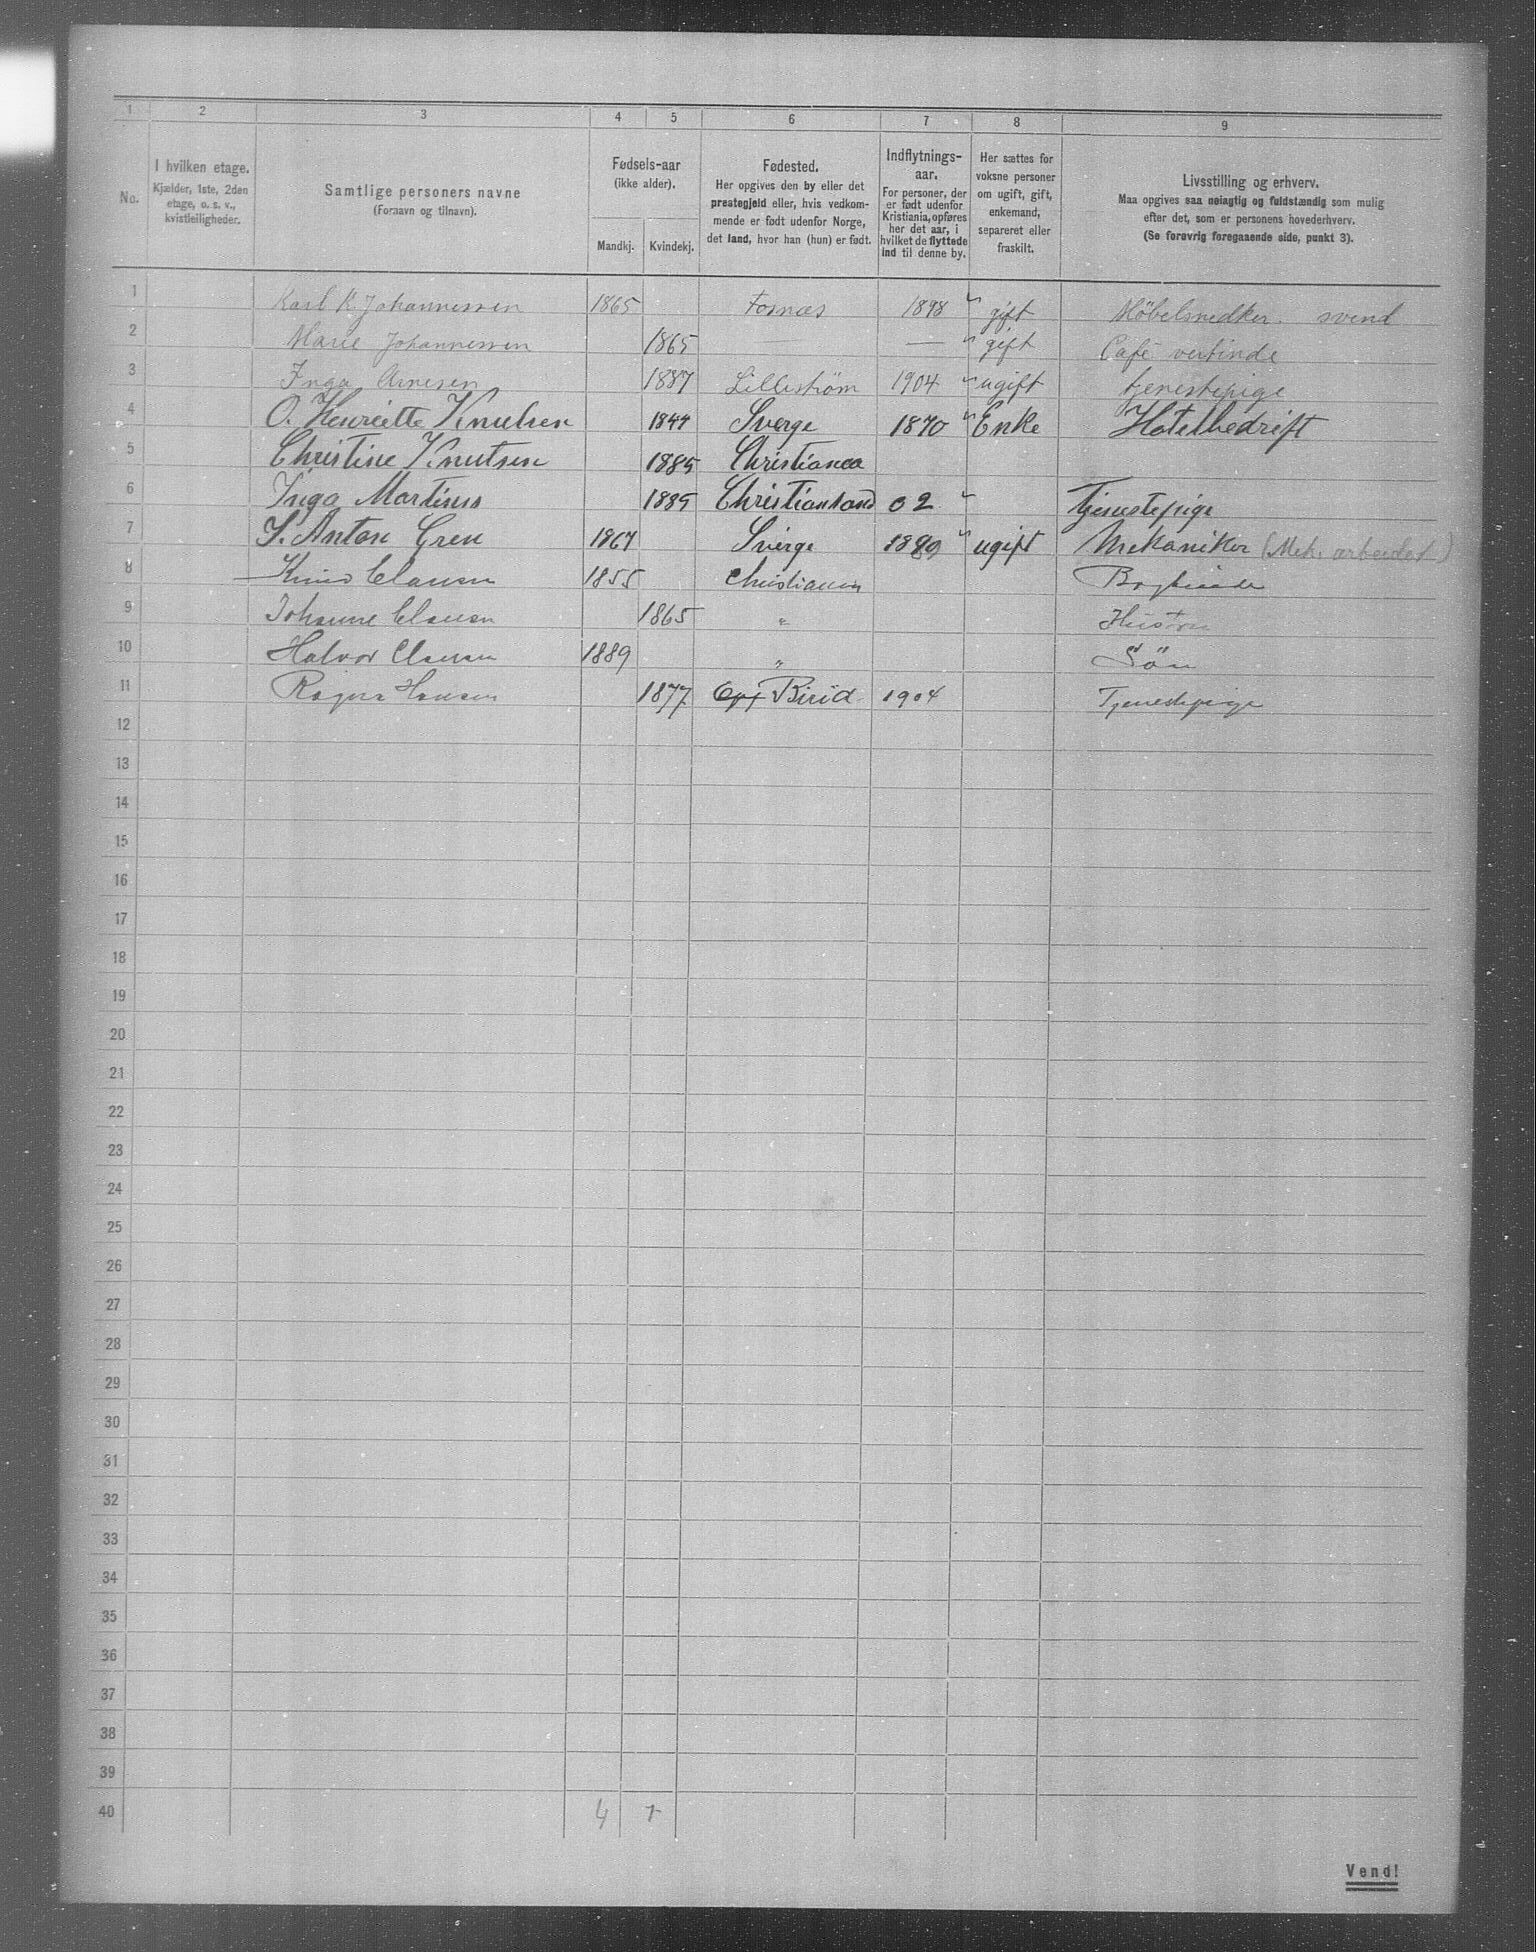 1 2 3 4 5 6 7 8 9
No.
I hvilken etage.
Kjælder, 1ste, 2den
etage, o. s. v.,
kvistleiligheder.
Samtlige personers navne
(Fornavn og tilnavn).
Fødsels-aar
(ikke alder).
Mandkj. Kvindekj.
Fødested.
Her opgives den by eller det
prestegjeld eller, hvis vedkom-
mende er født udenfor Norge,
det land, hvor han (hun) er født.
Indflytnings-
aar.
For personer, der
er født udenfor
Kristiania, opføres
her det aar, i
hvilket de flyttede
ind til denne by.
Her sættes for
voksne personer
om ugift, gift,
enkemand,
separeret eller
fraskilt.
Livsstilling og erhverv.
Maa opgives saa nøiagtig og fuldstændig som mulig
efter det, som er personens hovederhverv.
(Se forøvrig foregaaende side, punkt 3).
1 Karl K. Johannessen 1865 Fosnæs 1898 gift Möbelsnedker. svend
2 Marie Johannessen 1865 — — gift Café vertinde
3 Inga Arnesen 1887 Lillestrøm 1904 ugift tjenestepige
4 O. Henriette Knutsen 1844 Sverge 1870 Enke Hotelbedrift
5 Christine Knutsen 1885 Christiania
6 Inga Martins 1885 Christiansand 02 Tjenestepige
7 S. Anton Gren 1867 Sverge 1889 ugift Mekaniker (Mek. arbeidet)
8 Clausen 1855 Christiania
9 Johanne Clausen 1865 " Hustru
10 Halvor Clausen 1889 " Sön
11 Ragna Hansen 1877 Birid 1904 Tjenestepige
12
13
14
15
16
17
18
19
20
21
22
23
24
25
26
27
28
29
30
31
32
33
34
35
36
37
38
39
40 4 7
Vend!